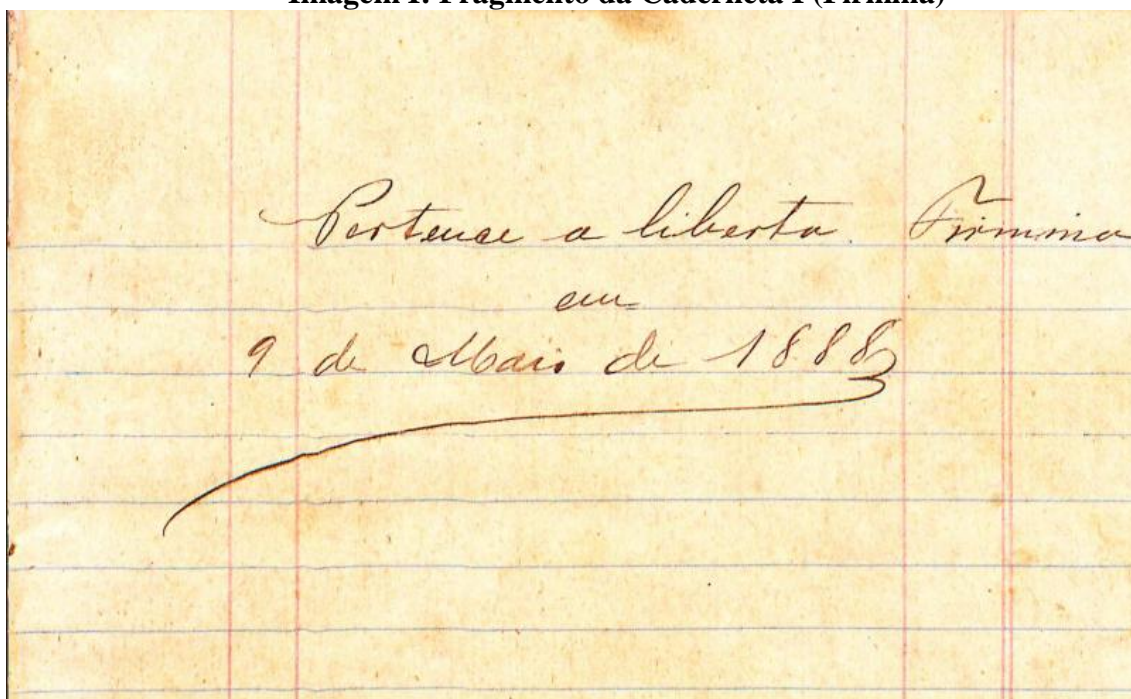 Imagem 1: Fragmento da Caderneta 1 (Firmina)
Pertence a liberta Firmina
em
9 de Maio de 1888